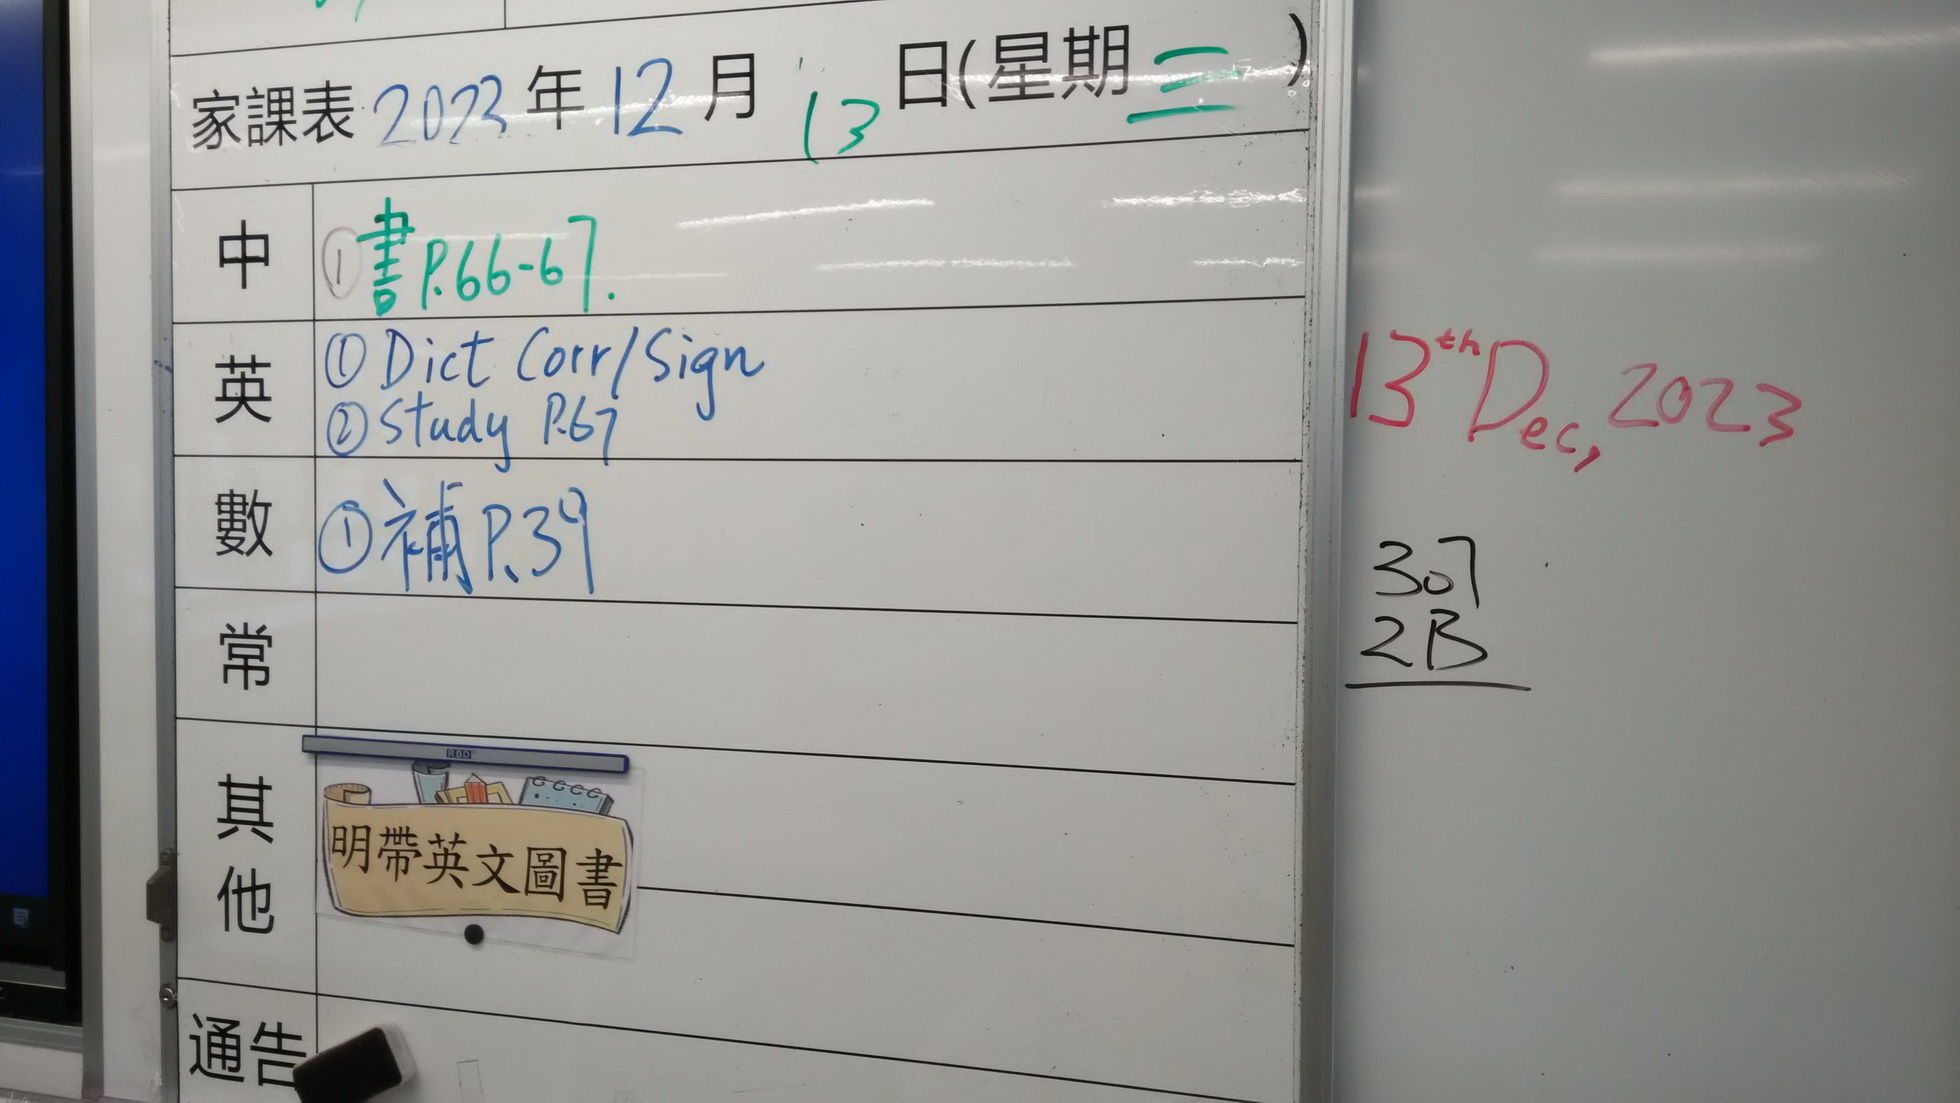 家課表 2023 年 12 月 13 日(星期三)
中 ①書P.66-67.
英 ①Dict Corr/Sign
②Study P.67
數 ①補P.39
常
其他
RBD
明帶英文圖書
通告
13th Dec, 2023
307
2B